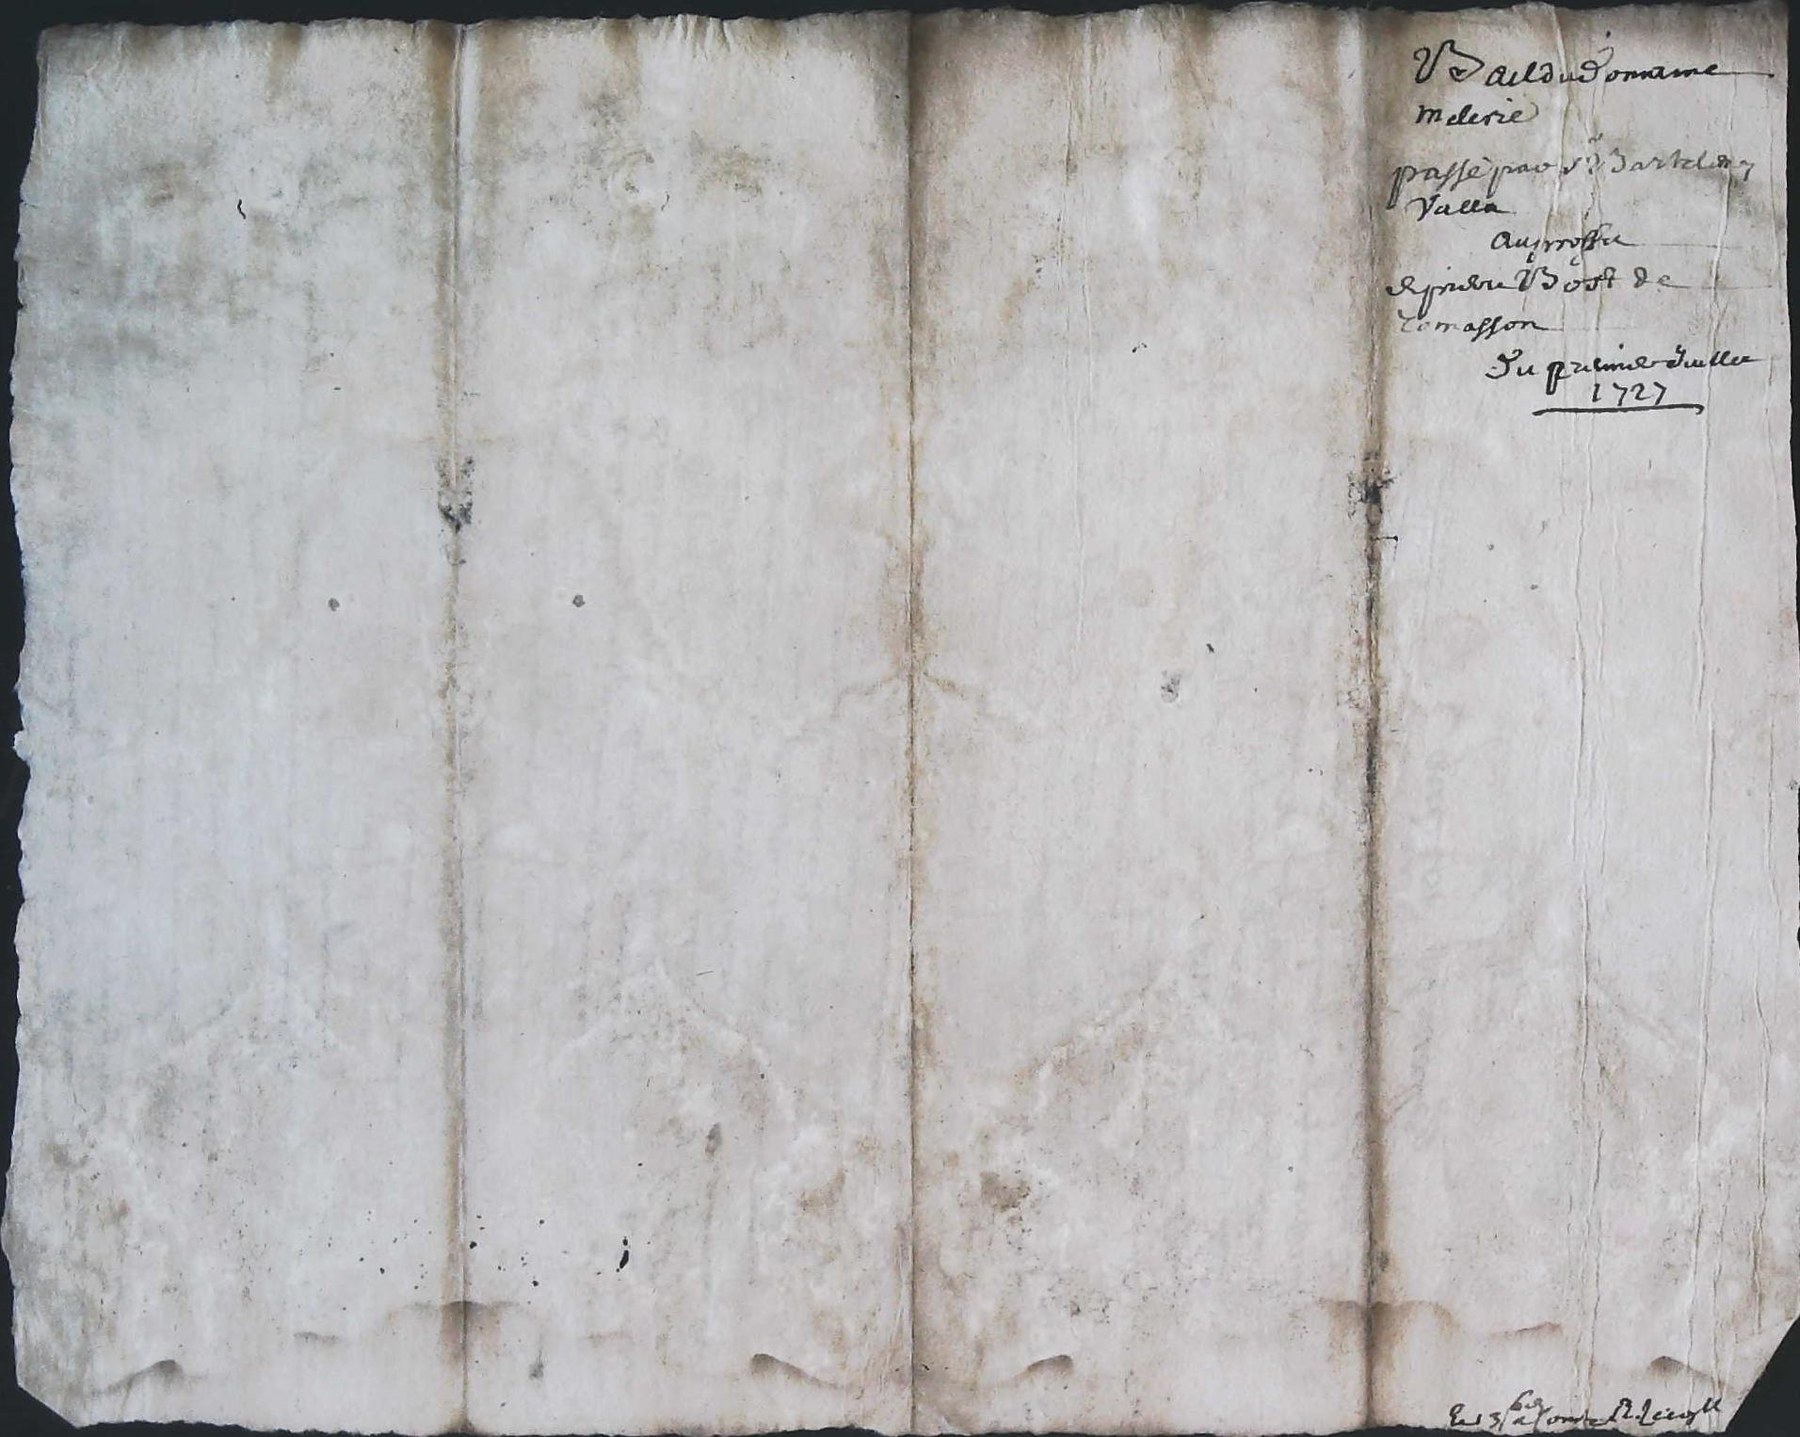 Bail du Domaine
melerie
passé par Sr Bartelemy
Valla
au proffit
de pierre Bost de
Tomasson
Du premier Juillet
1727